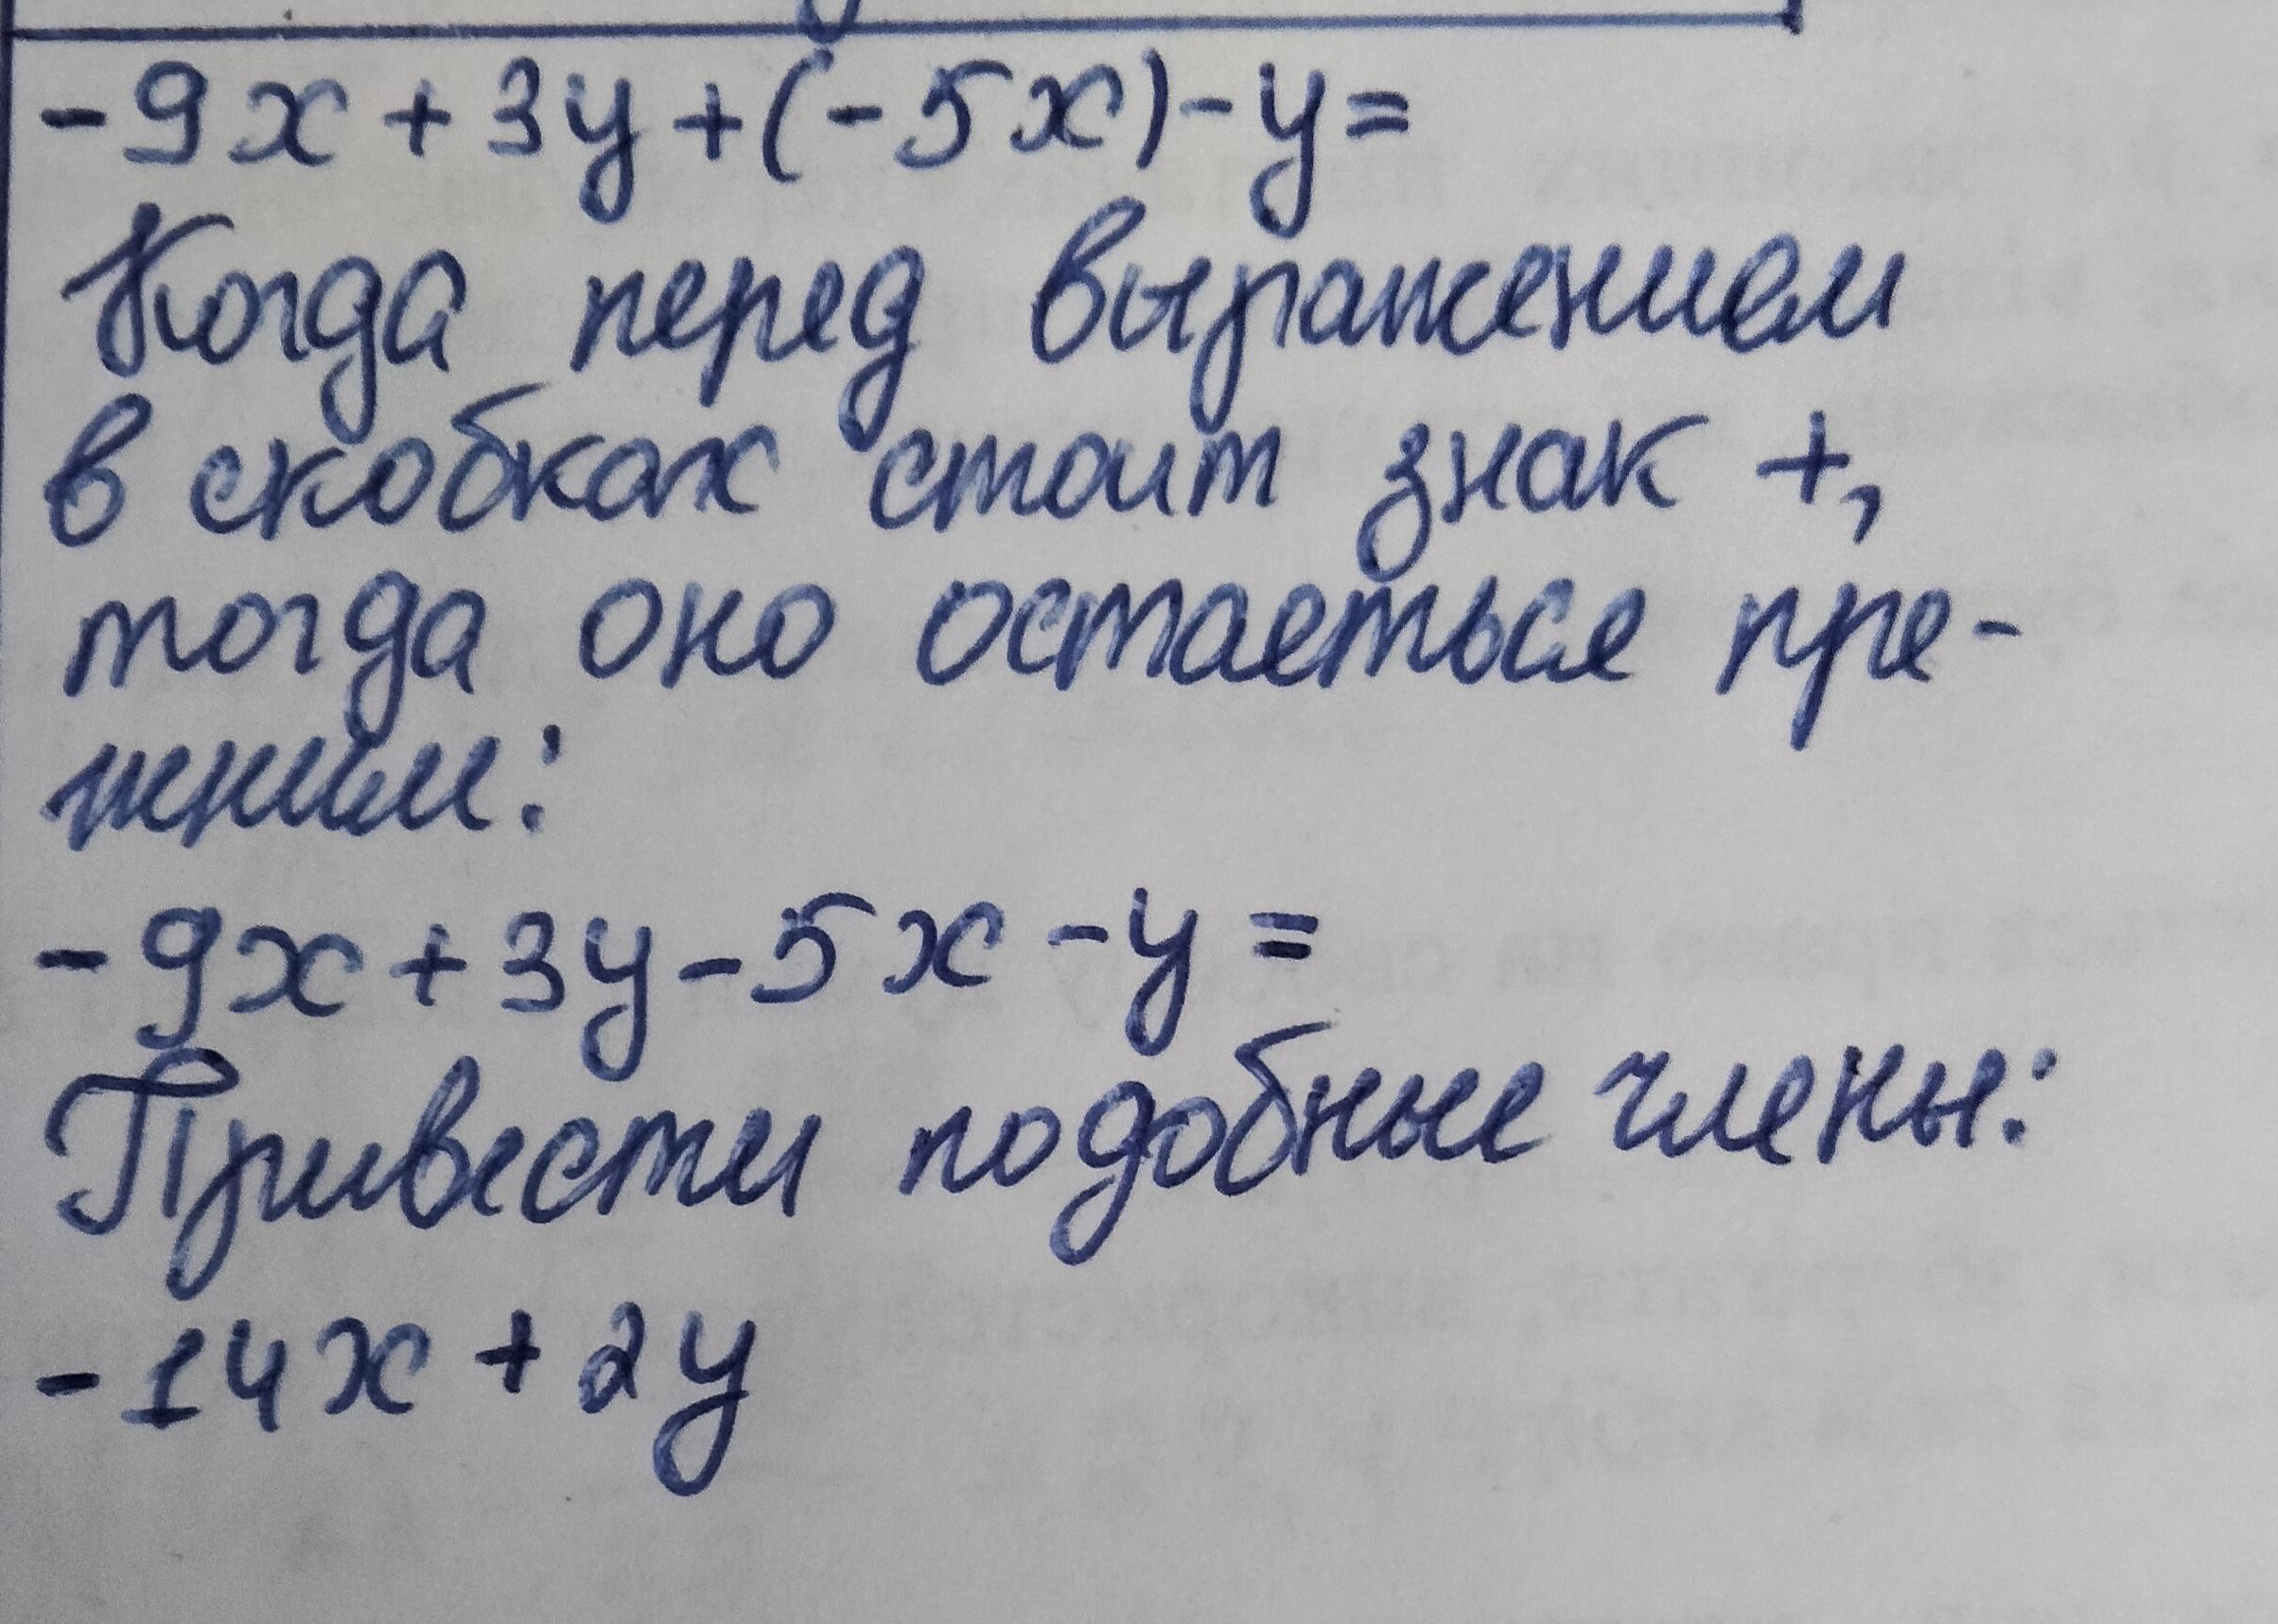 -9x+3y+(-5x)-y=
Когда перед выражением
в скобках стоит знак +,
тогда оно остаеться пре-
жним:
-9x+3y-5x-y=
Привести подобные члены:
-14x+2y